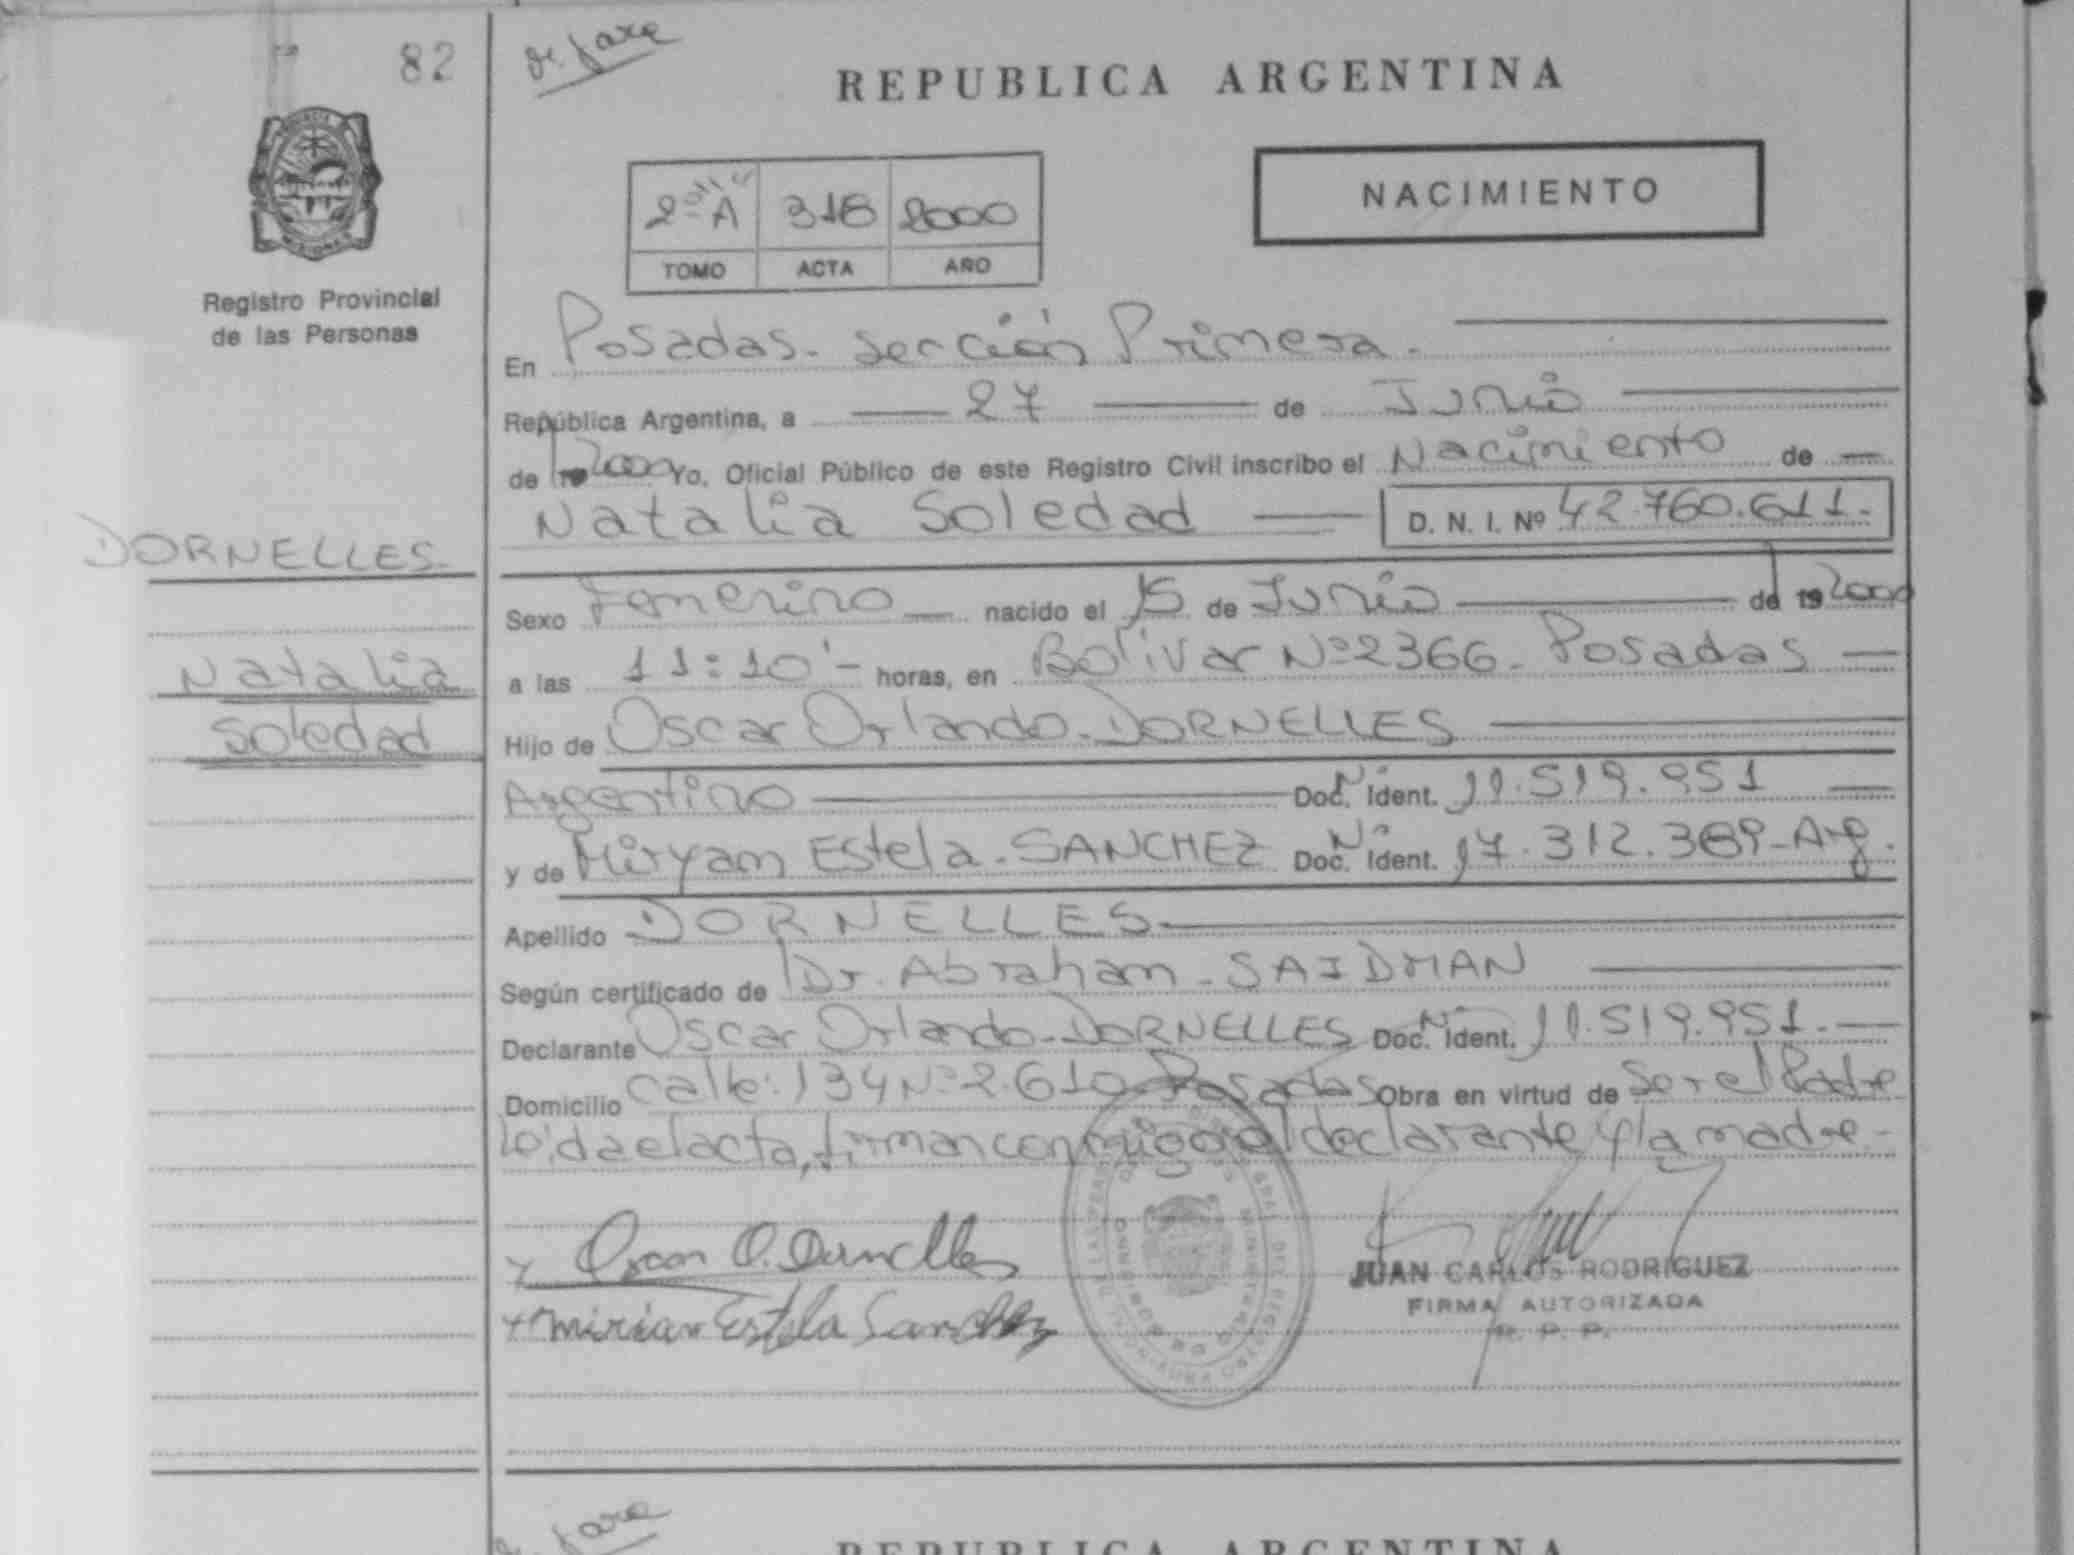 82
REPUBLICA ARGENTINA
2º A 316 2000
TOMO ACTA AÑO
NACIMIENTO
Registro Provincial
de las Personas
En Posadas. sección Primera.
República Argentina, a 27 de Junio
de 2000 Yo, Oficial Público de este Registro Civil inscribo el Nacimiento de
Natalia Soledad D. N. I. Nº 42.760.611.
DORNELLES.
Natalia
Soledad
Sexo Femenino nacido el 15 de Junio de 19 2000
a las 11:10'- horas, en Bolívar Nº 2366. Posadas
Hijo de Oscar Orlando. DORNELLES
Argentino Doc. Nº Ident. 11.519.951
y de Miryam Estela. SANCHEZ Doc. Nº Ident. 17.312.389-Arg.
Apellido DORNELLES
Según certificado de Dr. Abraham - SAIDMAN
Declarante Oscar Orlando-DORNELLES Doc. Nº Ident. 11.519.951.
Domicilio calle: 134 Nº 2.610 Posadas Obra en virtud de Ser el Padre
leída el acta, firman conmigo el declarante y la madre.-
Oscar O. Dornelles
Mirian Estela Sanchez
JUAN CARLOS RODRIGUEZ
FIRMA AUTORIZADA
R. P. P.
REPUBLICA ARGENTINA